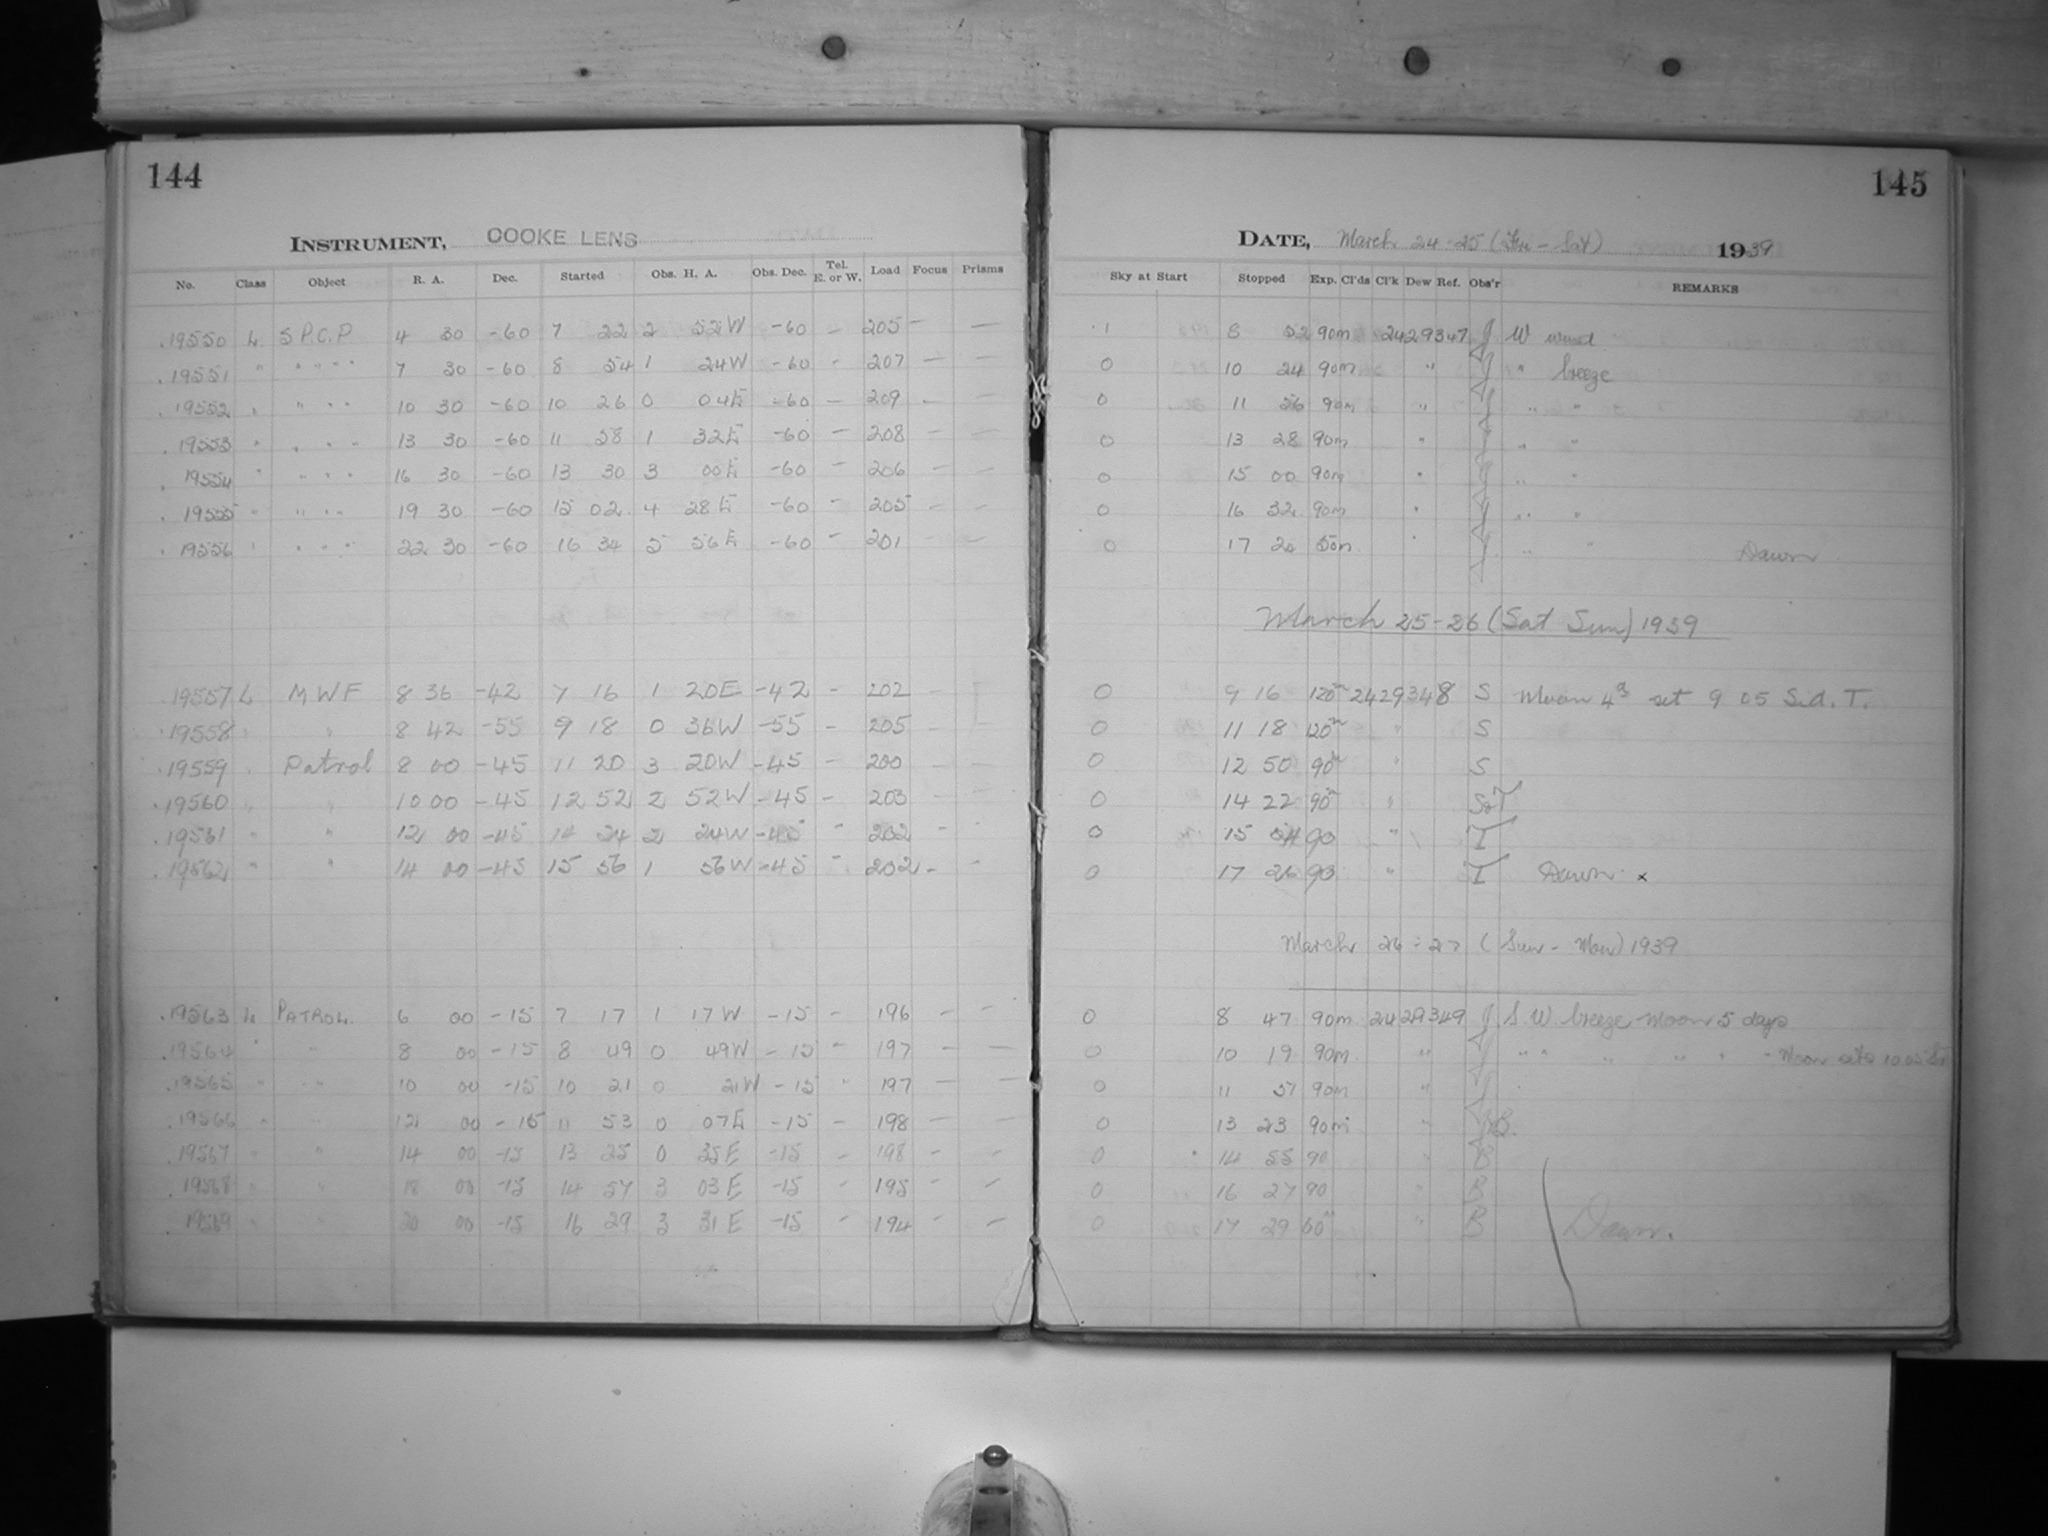 144
INSTRUMENT, COOKE LENS
No. Class Object R. A. Dec. Started Obs. H. A. Obs. Dec. Tel. E. or W. Load Focus Prisms
19550 L S P.C.P 4 30 -60 7 22 2 52W -60 - 205 - -
19551 " " " " " 7 30 -60 8 54 1 24W -60 - 207 - -
19552 " " " " 10 30 -60 10 26 0 04E -60 - 209 - -
19553 " " " " 13 30 -60 11 58 1 32E -60 - 208 - -
19554 " " " " 16 30 -60 13 30 3 00E -60 - 206 - -
19555 " " " " 19 30 -60 15 02 4 28E -60 - 205 - -
19556 " " " " 22 30 -60 16 34 5 56E -60 - 201 - -
19557 L MWF 8 36 -42 7 16 1 20E -42 - 202 -
19558 " " 8 42 -55 9 18 0 36W -55 - 205 -
19559 " Patrol 8 00 -45 11 20 3 20W -45 - 200 -
19560 " " 10 00 -45 12 52 2 52W -45 - 203 -
19561 " " 12 00 -45 14 24 2 24W -45 " 202 - -
19562 " " 14 00 -45 15 56 1 56W -45 " 202 - -
19563 L PATROL 6 00 -15 7 17 1 17W -15 - 196 - -
19564 " " 8 00 -15 8 49 0 49W -15 - 197 - -
19565 " " 10 00 -15 10 21 0 21W -15 " 197 - -
19566 " " 12 00 -15 11 53 0 07E -15 - 198 - -
19567 " " 14 00 -15 13 25 0 35E -15 - 198 - -
19568 " " 18 00 -15 14 57 3 03E -15 - 195 - -
19569 " " 20 00 -15 16 29 3 31E -15 - 194 - -
145
DATE, March 24-25 (Fri - Sat) 1939
Sky at Start Stopped Exp. Cl'ds Cl'k Dew Ref. Obs'r REMARKS
1 8 52 90m 2429347 J W wind
0 10 24 90m " J " breeze
0 11 56 90m " J " "
0 13 28 90m " J " "
0 15 00 90m " J " "
0 16 32 90m " J " "
0 17 24 50m " J " " Dawn
March 25-26 (Sat Sun) 1939
0 9 16 120m 2429348 S Moon 4d set 9 05 Sid. T.
0 11 18 120m " S
0 12 50 90m " S
0 14 22 90m " S&T
0 15 54 90 " T
0 17 26 90 " T Dawn x
March 26-27 (Sun - Mon) 1939
0 8 47 90m 2429349 J S.W. breeze Moon 5 days
0 10 19 90m " J " " " " " " Moon sets 10 05
0 11 51 90m " J
0 13 23 90m " JB
0 14 55 90 " B
0 16 27 90 " B
0 17 29 60m " B Dawn.